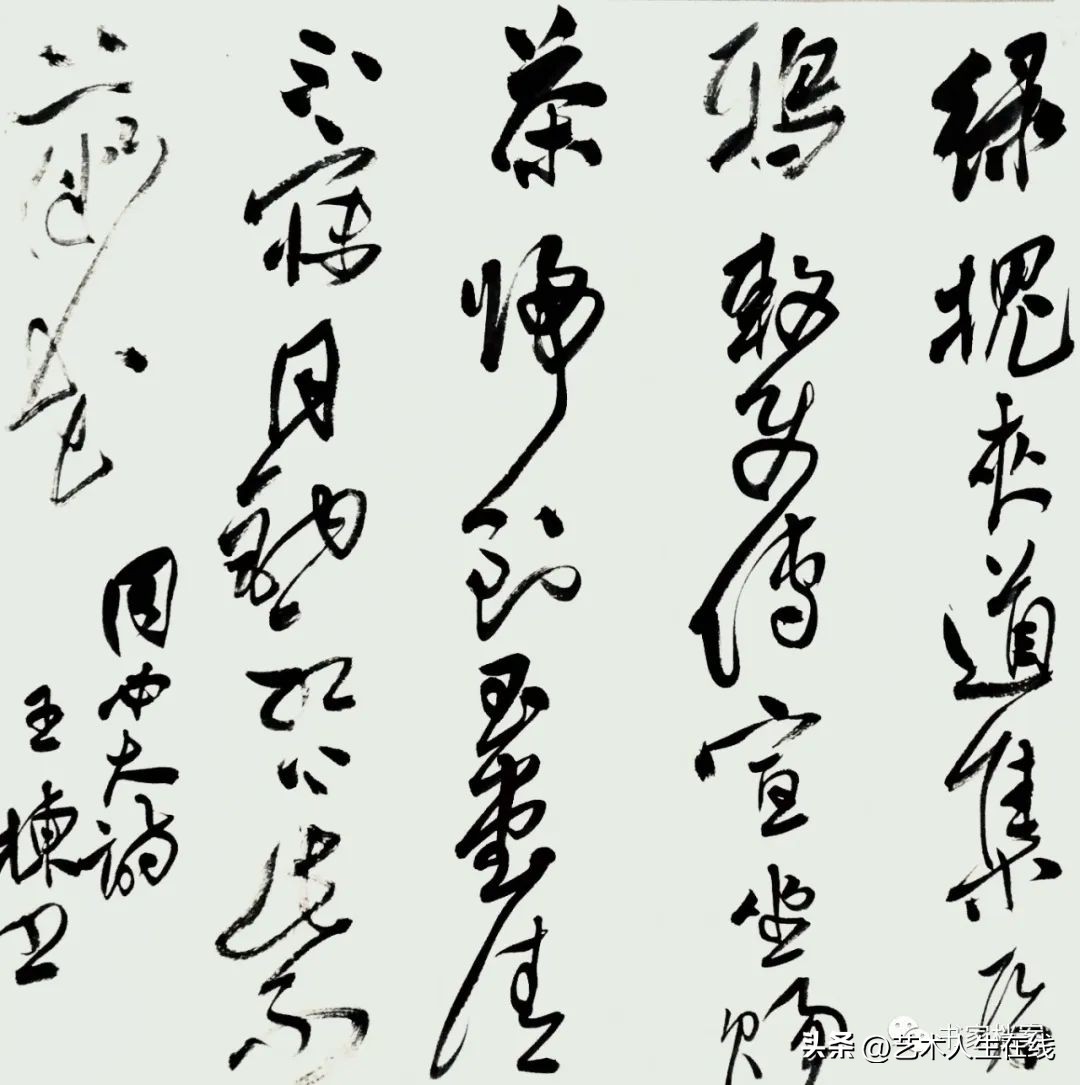 绿槐夹道集昏
鴉敕使傳宣坐賜
茶歸到玉堂清
不寐月鈎初上紫
薇花
周必大詩
王棟
头条 @艺术人生在线